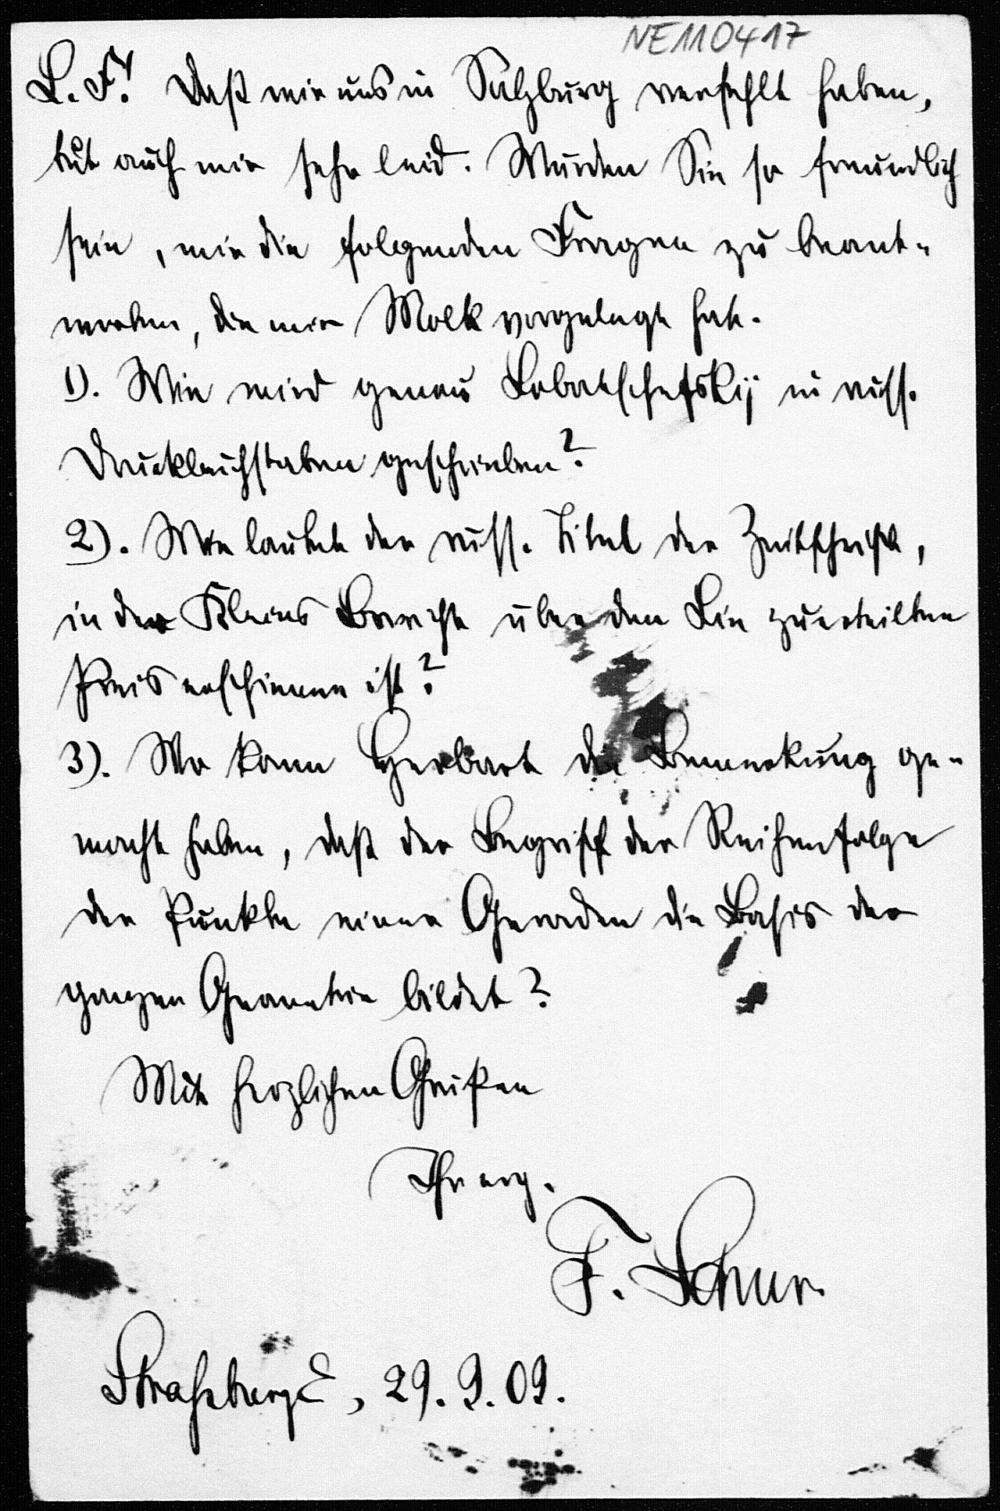 NE110417
L. F.! Daß wir uns in Salzburg verfehlt haben,
tut auch mir sehr leid. Würden Sie so freundlich
sein, mir die folgenden Fragen zu beant-
worten, die mir Molk vorgelegt hat.
1). Wie wird genau Lobatschefskij in russ.
Druckbuchstaben geschrieben?
2). Wie lautet der russ. Titel der Zeitschrift,
in der Kleins Bericht über den Lie zuerteilten
Preis erschienen ist?
3). Wo kann Herbart die Bemerkung ge-
macht haben, daß der Begriff der Reihenfolge
der Punkte einer Geraden die Basis der
ganzen Geometrie bildet?
Mit herzlichen Grüßen
Ihr erg.
F. Schur.
Straßburg E, 29. 9. 09.